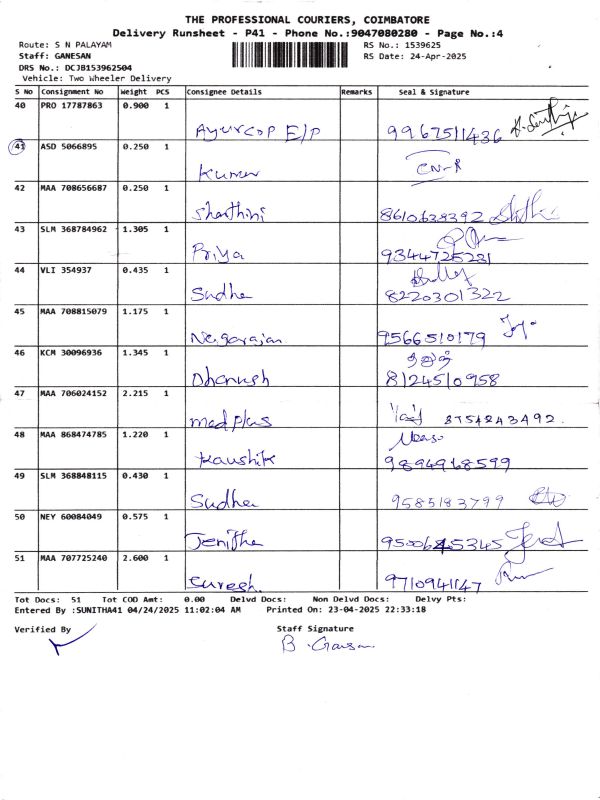 THE PROFESSIONAL COURIERS, COIMBATORE
Delivery Runsheet - P41 - Phone No.:9047080280 - Page No.:4
Route: S N PALAYAM RS No.: 1539625
Staff: GANESAN RS Date: 24-Apr-2025
DRS No.: DCJB153962504
Vehicle: Two Wheeler Delivery
S No Consignment No Weight PCS Consignee Details Remarks Seal & Signature
40 PRO 17787863 0.900 1
Ayurcop E/P 9967511436
41 ASD 5066895 0.250 1 CN-R
Kumar
42 MAA 708656687 0.250 1
Shanthini 8610638392
43 SLM 368784962 1.305 1
Priya 9344725231
44 VLI 354937 0.435 1
Sudha 8220301322
45 MAA 708815079 1.175 1
Nagarajan 9566510179
46 KCM 30096936 1.345 1
Dhanush 8124510958
47 MAA 706024152 2.215 1
medplus 8754243492.
48 MAA 868474785 1.220 1
Kaushik 9894968599
49 SLM 368848115 0.430 1
Sudha 9585183799
50 NEY 60084049 0.575 1
Jenitha 9500645345
51 MAA 707725240 2.600 1
Suresh. 9710941147
Tot Docs: 51 Tot COD Amt: 0.00 Delvd Docs: Non Delvd Docs: Delvy Pts:
Entered By :SUNITHA41 04/24/2025 11:02:04 AM Printed On: 23-04-2025 22:33:18
Verified By Staff Signature